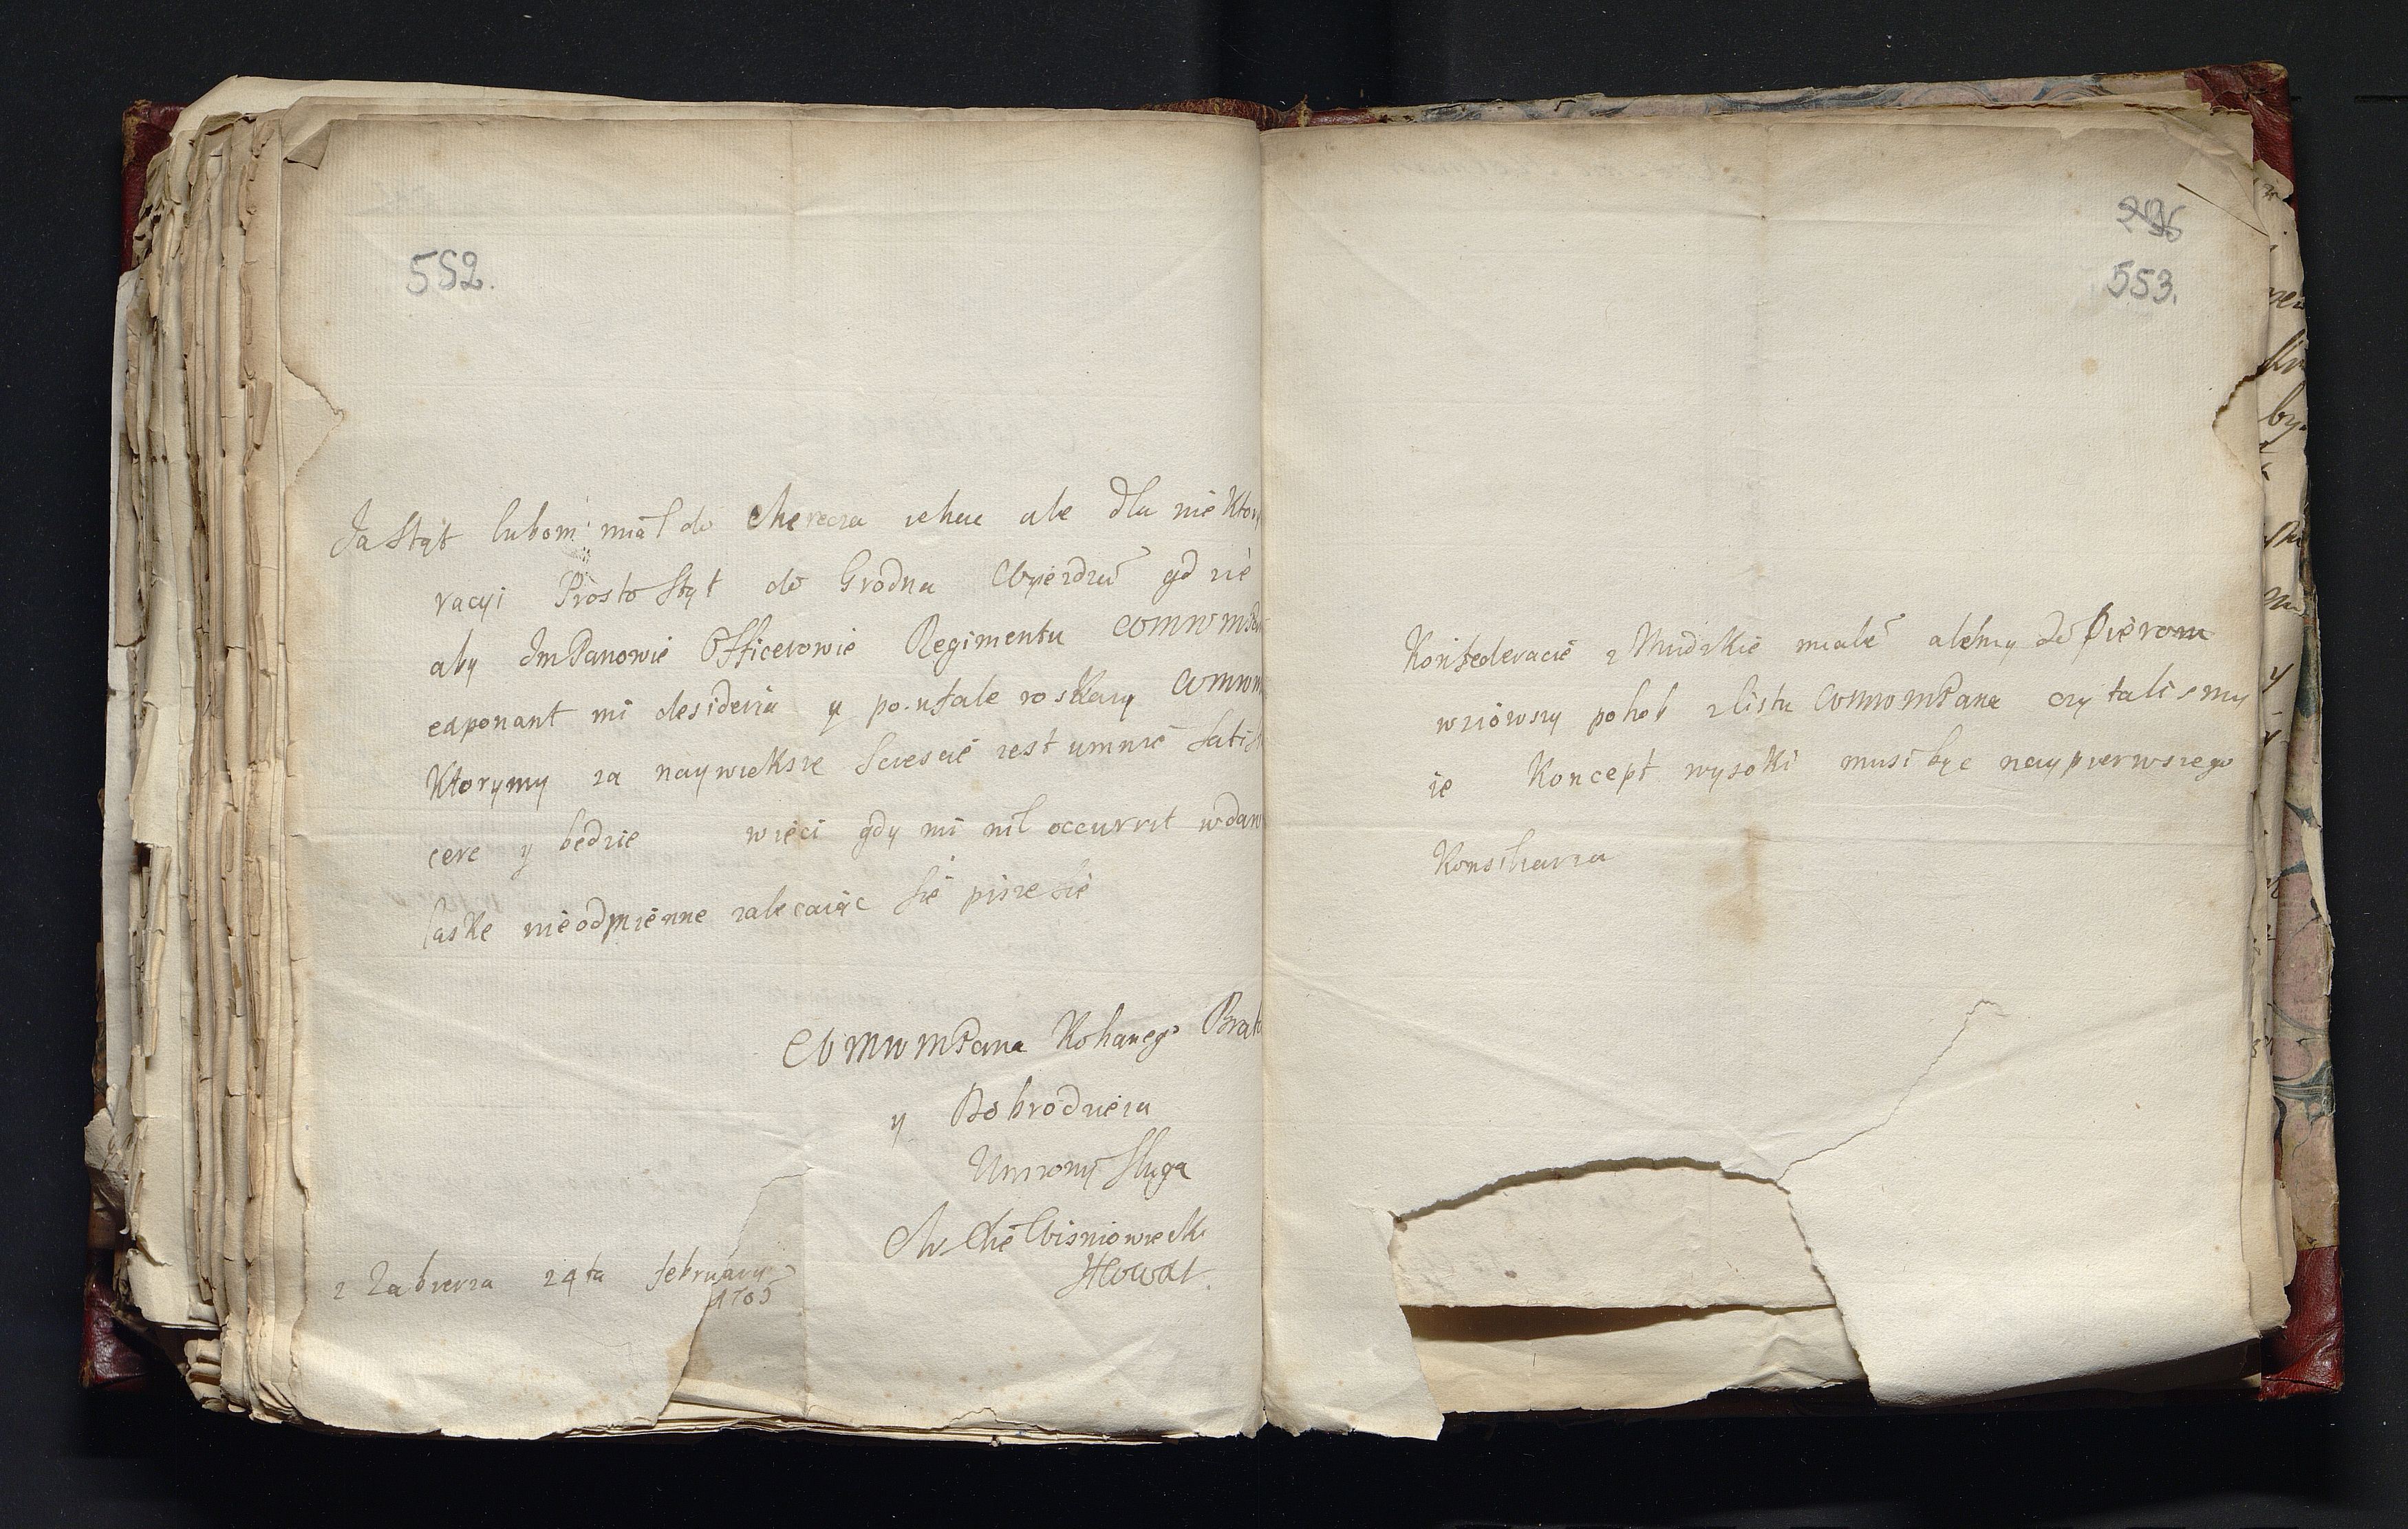 552.
Ja stąt lubom miał do Merecza iehac ale dla nie ktor
racyi Prosto stąt do Grodna Wyiezdzą gd zie
aby Im Panowie Officerowie Regimentu WMWMPan
exponant mi desideria y poufałe roskazy WMWM
Ktorymy za naywieksze sczescie iest umnie satis
cere y bedzie więci gdy mi nil occurrit w daw
łaske nieodmienne zalecaiąc się pisze się
WMWMPana Kohanego Brata
y Bobrodzieia
Unizony Sługa
Wisniowiecki
HWWXL.
z Zabierza 24ta february
1705
553.
Konfederacie z Mudzkie miałe alesmy do Pierom
wziowszy pohob z listu WMWMPana czytalismy
ie Koncept wysoki musi byc naypierwszego
Konsiliarza